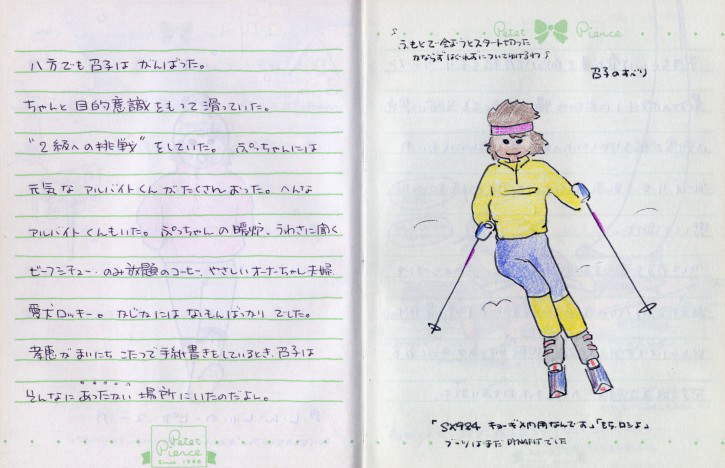 八方でも召子は がんばった。
ちゃんと 目的意識をもって 滑っていた。
"2級への挑戦" をしていた。 ぷっちゃんには
元気な アルバイトくんが たくさんおった。 へんな
アルバイトくんもいた。 ぷっちゃんの暖炉、うわさに聞く
ビーフシチュー・のみ放題のコーヒー、やさしいオーナーちゃん夫婦
愛犬ロッキー。 なじかには なもんばっかり でした。
孝恵が まいにち こたつで 手紙書きをしているとき、召子は
そんなに あったかい 場所に いたのだよん。
Petit Pierce
Since 1988
Petit Pierce
♪ ふもとで会おうとスタート切った
かならずはぐれずについてゆけるわ♪
召子のすべり
「SX984 キョーギ入門用なんです」「もち、ロンよ」
ブーツはまだ DYNAFIT でした